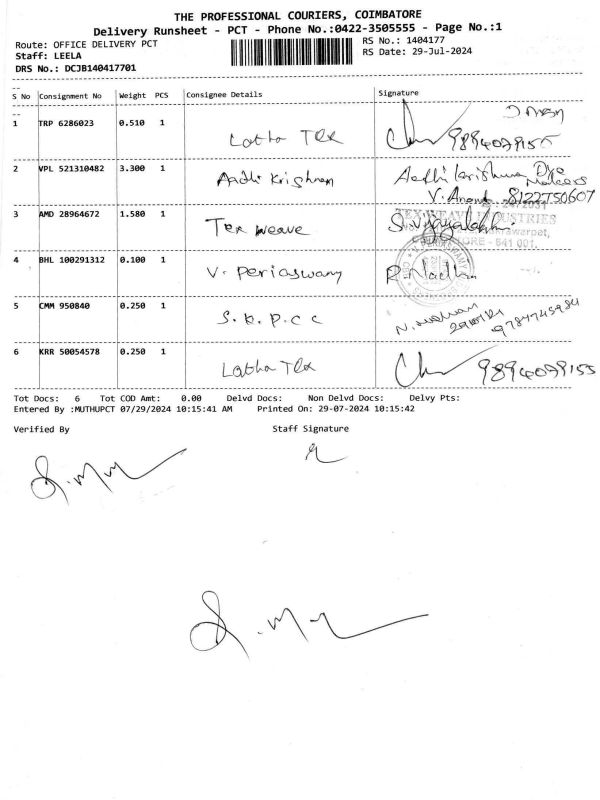 THE PROFESSIONAL COURIERS, COIMBATORE
Delivery Runsheet - PCT - Phone No.:0422-3505555 - Page No.:1
Route: OFFICE DELIVERY PCT RS No.: 1404177
Staff: LEELA RS Date: 29-Jul-2024
DRS No.: DCJB140417701
S No Consignment No Weight PCS Consignee Details Signature
1 TRP 6286023 0.510 1 Latha Tex 9894079155
2 VPL 521310482 3.300 1 Aadhi Krishnan Aadhi Krishnan Dye Makers
V. Anand 8122750607
3 AMD 28964672 1.580 1 Tex weave S. Vijayalakshmi
TEX WEAVE INDUSTRIES
COIMBATORE - 641 001.
4 BHL 100291312 0.100 1 V. Periaswamy R. Nadha
5 CMM 950840 0.250 1 S.K.P.C.C 9787745984
6 KRR 50054578 0.250 1 Latha Tex 9894079155
Tot Docs: 6 Tot COD Amt: 0.00 Delvd Docs: Non Delvd Docs: Delvy Pts:
Entered By :MUTHUPCT 07/29/2024 10:15:41 AM Printed On: 29-07-2024 10:15:42
Verified By Staff Signature